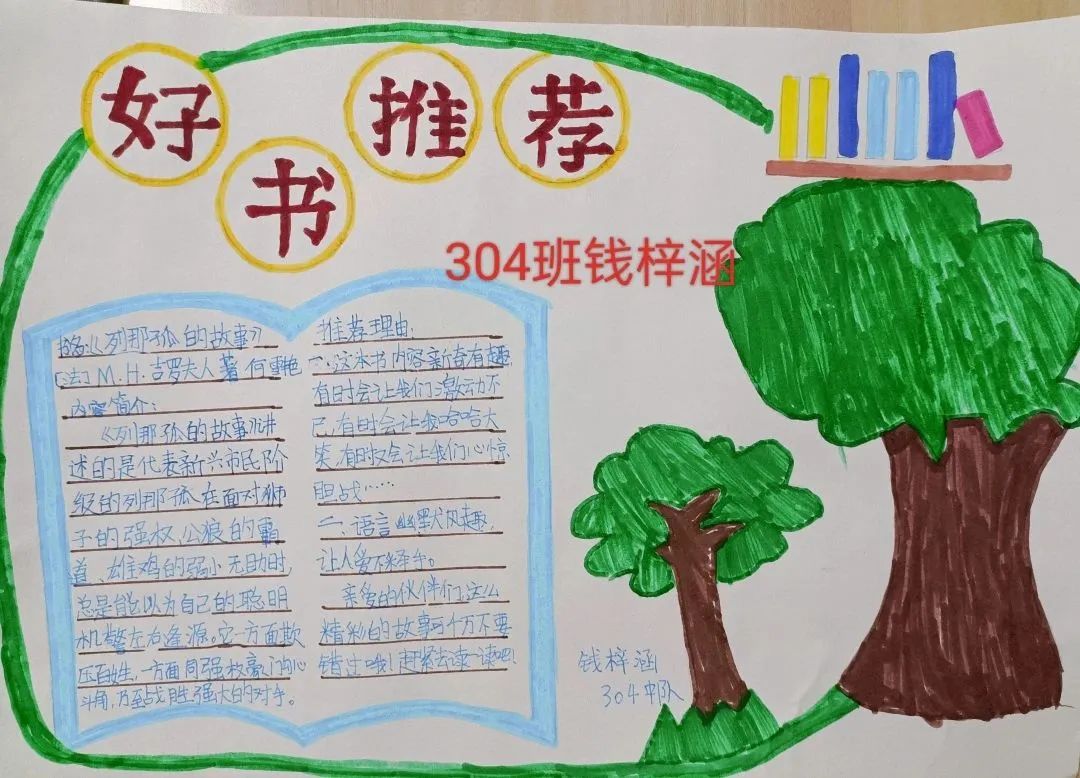 好书推荐
304班钱梓涵
书名:《列那狐的故事》
[法] M.H.吉罗夫人 著 何重艳
内容简介:
《列那狐的故事》讲
述的是代表新兴市民阶
级的列那狐在面对狮
子的强权,公狼的霸
道、雄鸡的弱小无助时,
总是能以为自己的聪明
机警左右逢源。它一方面欺
压百姓,一方面同强权豪门勾心
斗角,乃至战胜强大的对手。
推荐理由:
一、这本书内容新奇有趣
有时会让我们激动不
已,有时会让我哈哈大
笑,有时又会让我们心惊
胆战……
二、语言幽默风趣,
让人爱不释手。
亲爱的伙伴们,这么
精彩的故事可千万不要
错过哦!赶紧去读一读吧!
钱梓涵
304中队